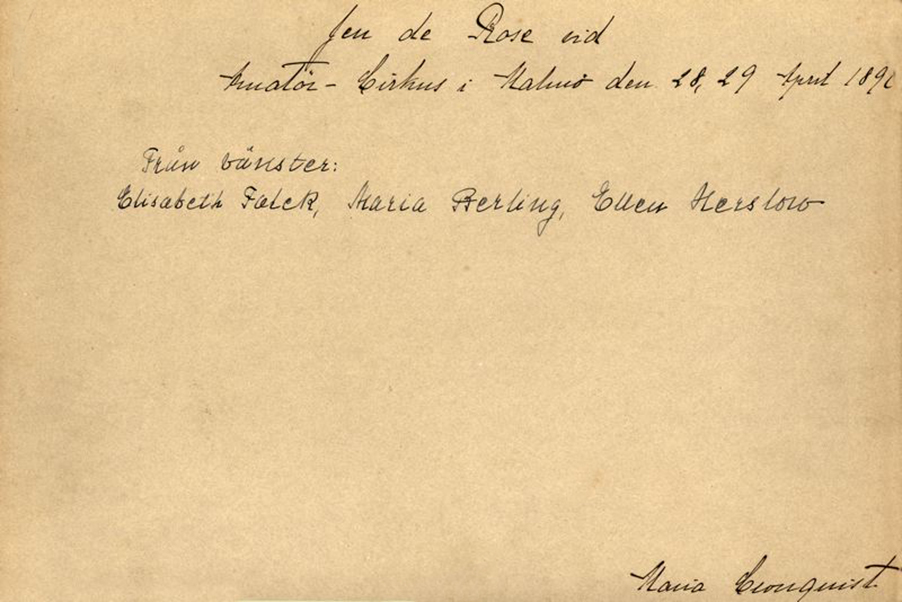 Jeu de Rose vid
Amatör-Cirkus i Malmö den 28, 29 April
Från vänster:
Elisabeth Falck, Maria Berling, Ellen Herslow
Maria Cronquist